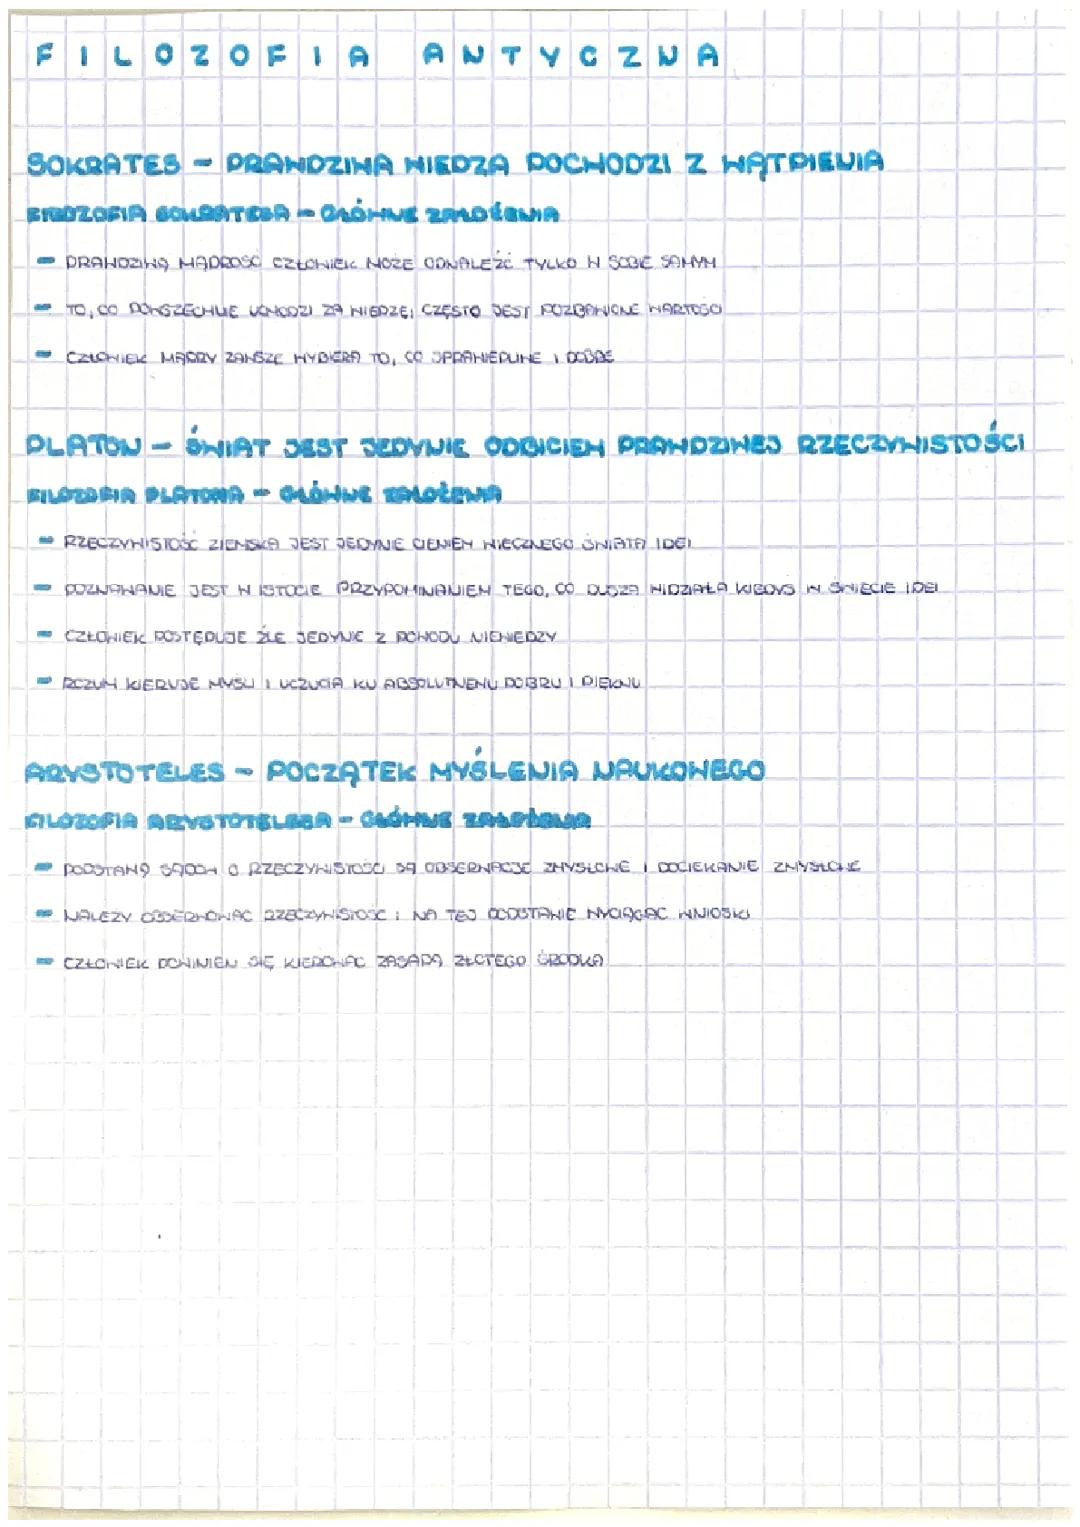 FILOZOFIA ANTYCZNA
SOKRATES - PRAWDZIWA WIEDZA POCHODZI Z WĄTPIENIA
FILOZOFIA SOKRATESA - GŁÓWNE ZAŁOŻENIA
- PRAWDZIWĄ MĄDROŚĆ CZŁOWIEK MOŻE ODNALEŹĆ TYLKO W SOBIE SAMYM
- TO, CO POWSZECHNIE UCHODZI ZA WIEDZĘ, CZĘSTO JEST POZBAWIONE WARTOŚCI
- CZŁOWIEK MĄDRY ZAWSZE WYBIERA TO, CO SPRAWIEDLIWE I DOBRE
PLATON - ŚWIAT JEST JEDYNIE ODBICIEM PRAWDZIWEJ RZECZYWISTOŚCI
FILOZOFIA PLATONA - GŁÓWNE ZAŁOŻENIA
- RZECZYWISTOŚĆ ZIEMSKA JEST JEDYNIE CIENIEM WIECZNEGO ŚWIATA IDEI
- POZNAWANIE JEST W ISTOCIE PRZYPOMINANIEM TEGO, CO DUSZA WIDZIAŁA KIEDYŚ W ŚWIECIE IDEI
- CZŁOWIEK POSTĘPUJE ŹLE JEDYNIE Z POWODU NIEWIEDZY
- ROZUM KIERUJE MYŚLI I UCZUCIA KU ABSOLUTNEMU DOBRU I PIĘKNU
ARYSTOTELES - POCZĄTEK MYŚLENIA NAUKOWEGO
FILOZOFIA ARYSTOTELESA - GŁÓWNE ZAŁOŻENIA
- PODSTAWĄ SĄDÓW O RZECZYWISTOŚCI SĄ OBSERWACJE ZMYSŁOWE I DOCIEKANIE ZMYSŁOWE
- NALEŻY OBSERWOWAĆ RZECZYWISTOŚĆ I NA TEJ PODSTAWIE WYCIĄGAĆ WNIOSKI
- CZŁOWIEK POWINIEN SIĘ KIEROWAĆ ZASADĄ ZŁOTEGO ŚRODKA